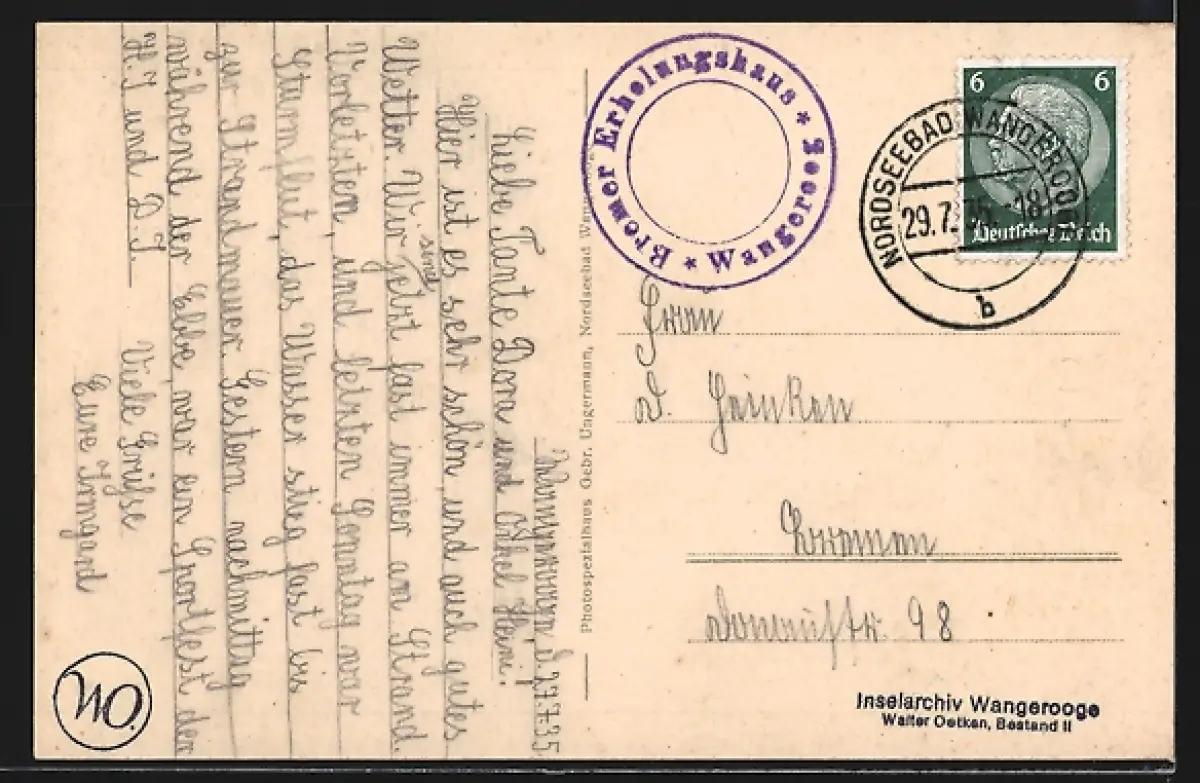 Wangerooge, d. 27.7.35
Liebe Tante Dora und Onkel Heini!
Hier ist es sehr schön, und auch gutes
Wetter. Wir sind jetzt fast immer am Strand.
Vorletzten, und letzten Sonntag war
Sturmflut, das Wasser stieg fast bis
zur Strandmauer. Gestern nachmittag
während der Ebbe, war ein Sportfest der
H.J und D.J.
Viele Grüße
Eure Irmgard
WO
Photospezialhaus Gebr. Ungermann, Nordseebad
Bremer Erholungshaus * Wangerooge *
NORDSEEBAD WANGEROOGE
29.7.35.-18
b
6 6
Deutsches Reich
Frau
D. Heinken
Bremen
Donaustr. 98
Inselarchiv Wangerooge
Walter Oetken, Bestand II